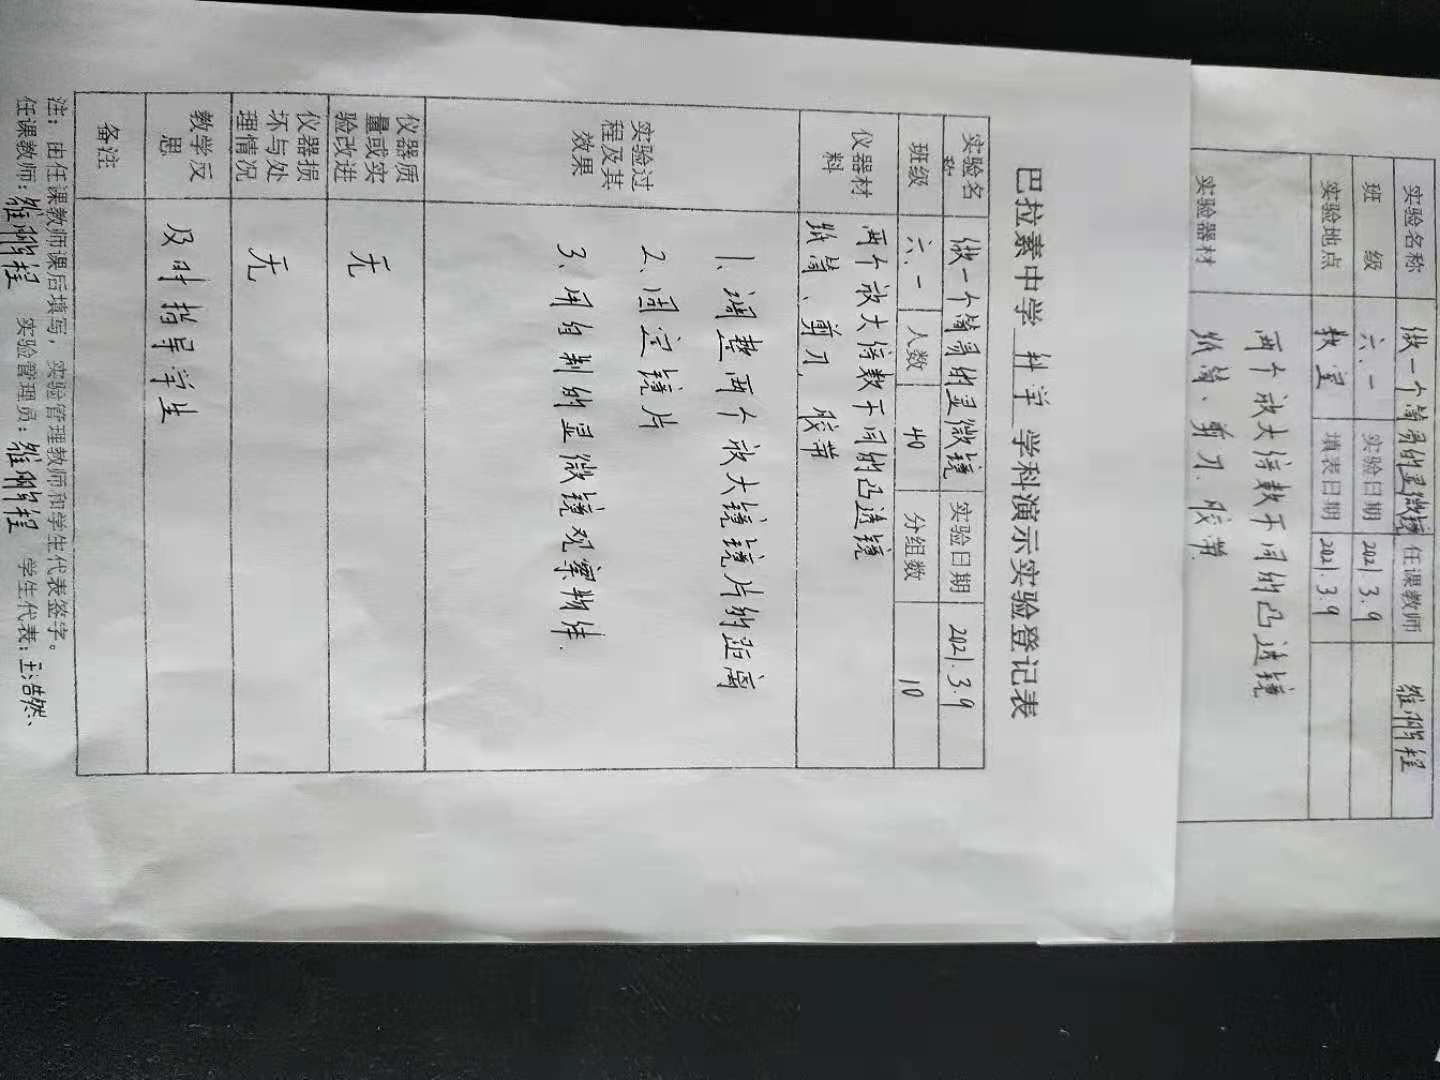 巴拉素中学 科学 学科演示实验登记表
实验名称 做一个简易的显微镜 实验日期 2021.3.9
班级 六.一 人数 40 分组数 10
仪器材料 两个放大倍数不同的凸透镜
纸筒、剪刀、胶带
实验过程及其效果
1、调整两个放大镜镜片的距离
2、固定镜片
3、用自制的显微镜观察物体.
仪器质量或实验改进 无
仪器损坏与处理情况 无
教学反思 及时指导学生
备注
注：由任课教师课后填写，实验管理教师和学生代表签字。
任课教师： 实验管理员： 学生代表：王浩然
实验名称 做一个简易的显微镜 任课教师
班 级 六.一 实验日期 2021.3.9
实验地点 教室 填表日期 2021.3.9
实验器材 两个放大倍数不同的凸透镜
纸筒、剪刀、胶带.